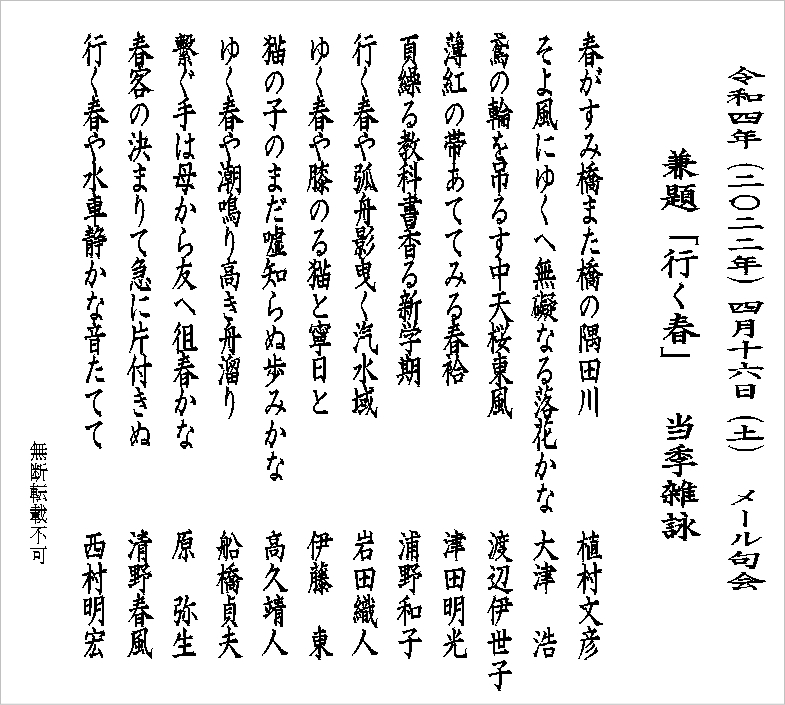 令和四年（二〇二二年）四月十六日（土）　メール句会
兼題「行く春」　当季雑詠
春がすみ橋また橋の隅田川　植村文彦
そよ風にゆくへ無礙なる落花かな　大津　浩
鳶の輪を吊るす中天桜東風　渡辺伊世子
薄紅の帯あててみる春袷　津田明光
頁繰る教科書香る新学期　浦野和子
行く春や弧舟影曳く汽水域　岩田織人
ゆく春や膝のる猫と寧日と　伊藤　東
猫の子のまだ嘘知らぬ歩みかな　高久靖人
ゆく春や潮鳴り高き舟溜り　船橋貞夫
繋ぐ手は母から友へ徂春かな　原　弥生
春客の決まりて急に片付きぬ　清野春風
行く春や水車静かな音たてて　西村明宏
無断転載不可